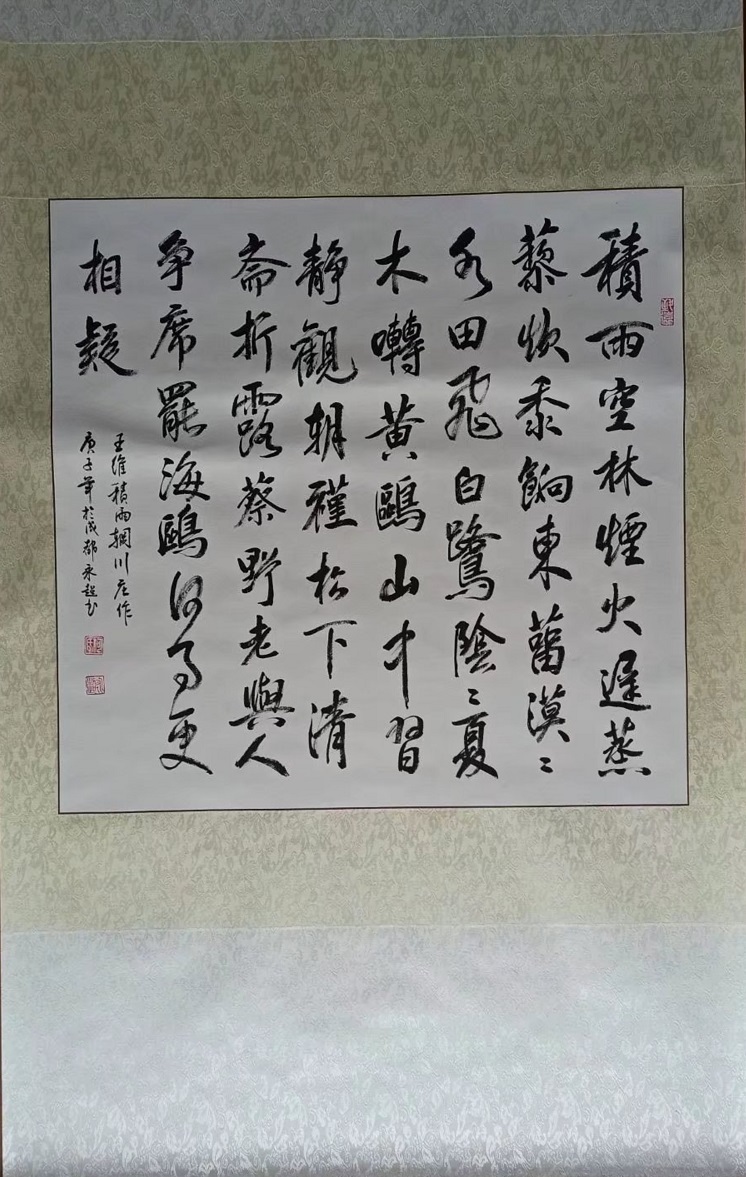 積雨空林煙火遲蒸
藜炊黍餉東菑漠〻
水田飛白鷺陰〻夏
木囀黄鷗山中習
靜觀朝槿松下清
齋折露葵野老與人
争席罷海鷗何事更
相疑
王維積雨輞川庄作
庚子年於成都永超书